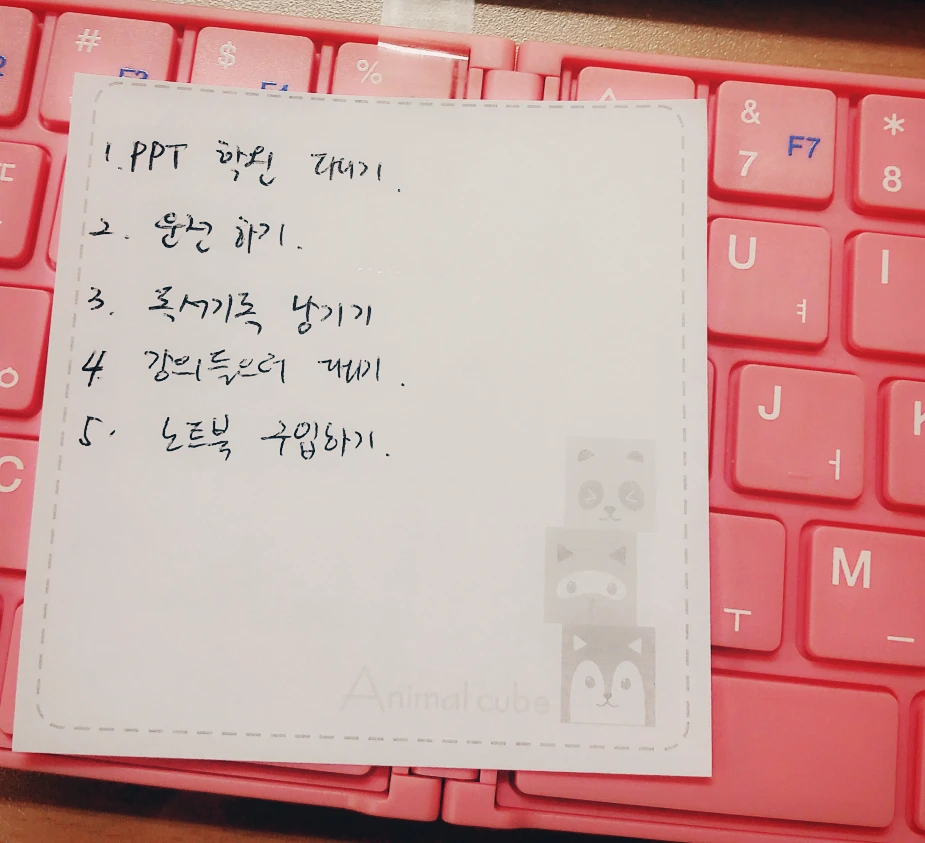 # $ %
F4
& 7 F7
* 8
1. PPT 학원 다니기.
2. 운전 하기.
3. 독서기록 남기기
4. 강의들으러 다니기.
5. 노트북 구입하기.
U ㅕ
I
J ㅓ
C
M ㅡ
ㅜ
Animal cube